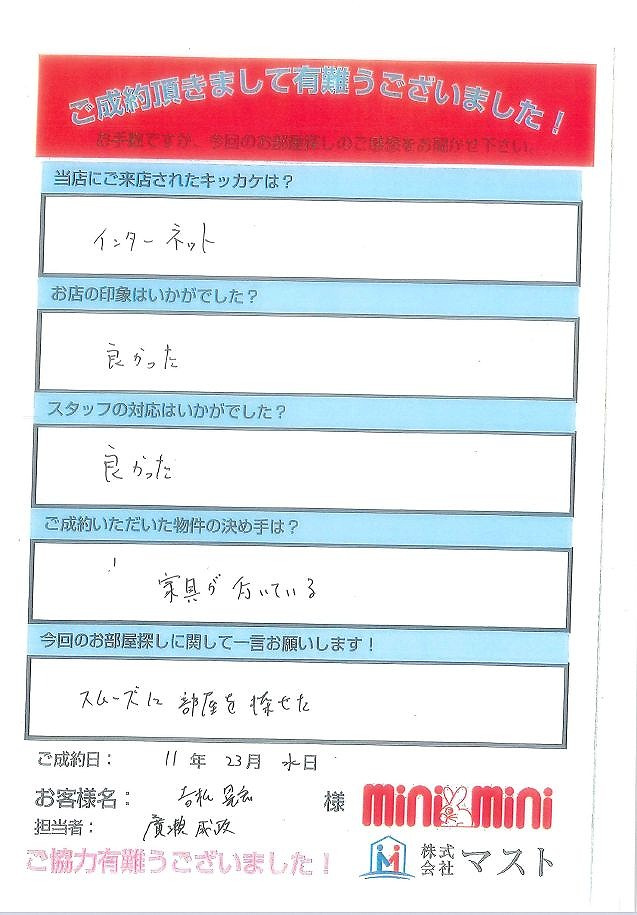 ご成約頂きまして有難うございました！
お手数ですが、今回のお部屋探しのご感想をお聞かせ下さい。
当店にご来店されたキッカケは？
インターネット
お店の印象はいかがでした？
良かった
スタッフの対応はいかがでした？
良かった
ご成約いただいた物件の決め手は？
家具が付いている
今回のお部屋探しに関して一言お願いします！
スムーズに部屋を探せた
ご成約日： 11年 23月 水日
お客様名： 様
担当者： 廣瀬 成政
minimini
ご協力有難うございました！
株式会社マスト